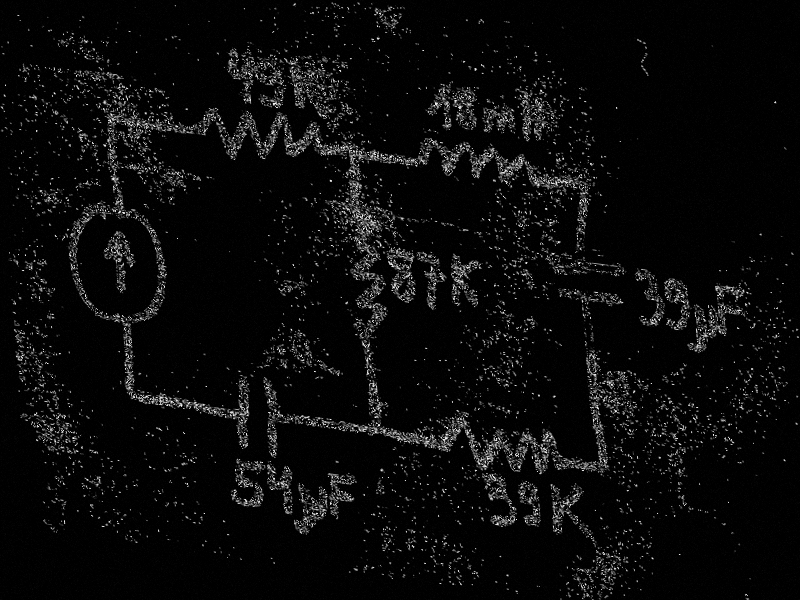 43K
18mH
87K
39µF
54µF
39K